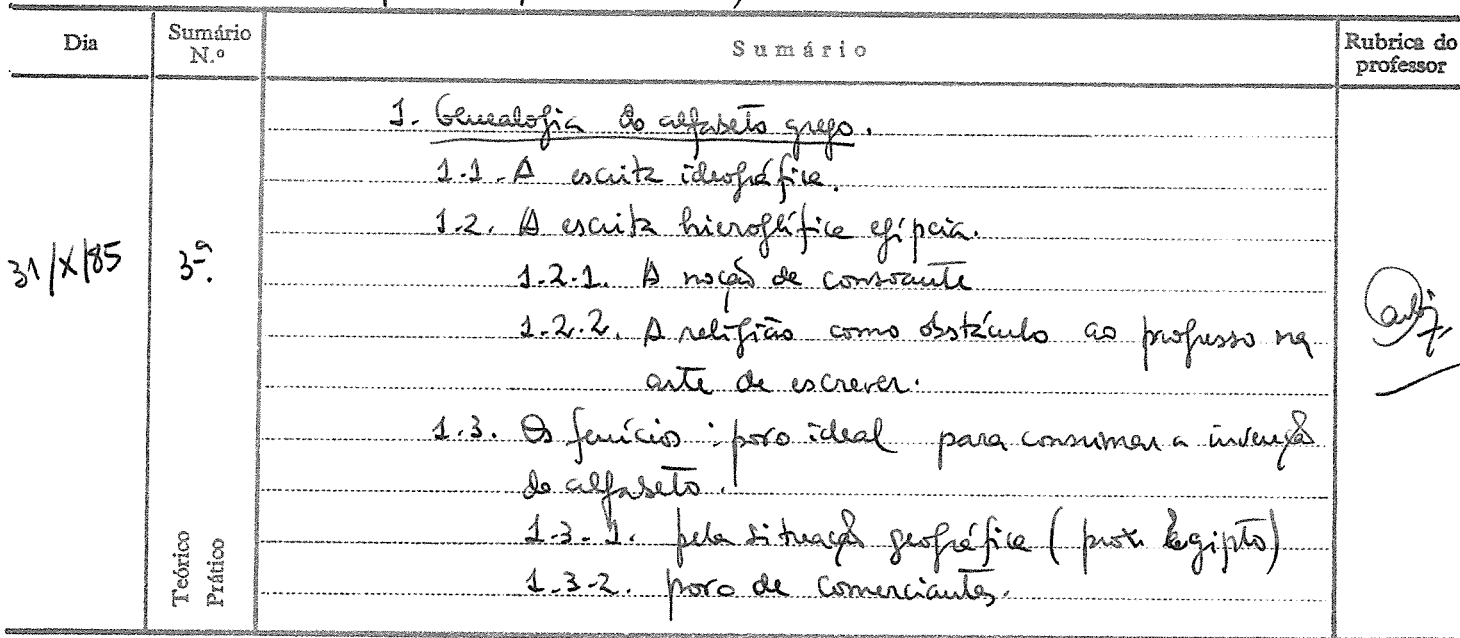 Dia
Sumário N.º
Sumário
Rubrica do professor
31/X/85
3ª.
Teórico
Prático
1. Genealogia do alfabeto grego.
1.1. A escrita ideográfica.
1.2. A escrita hieroglífica egípcia.
1.2.1. A noção de consoante
1.2.2. A religião como obstáculo ao progresso na
arte de escrever.
1.3. Os fenícios: povo ideal para consumar a invenção
do alfabeto.
1.3.1. pela situação geográfica (prox. Egipto)
1.3.2. povo de comerciantes.